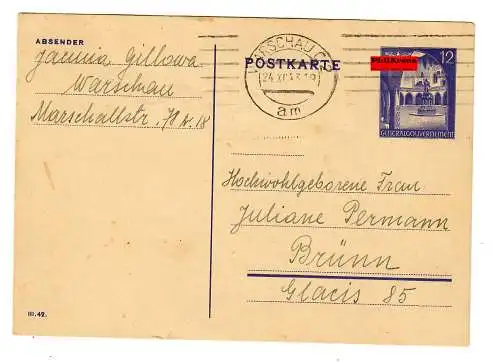 ABSENDER
Janina Gillowa
Warschau
Marschallstr. 78 W. 18
WARSCHAU C1
24.XI.43.19
am
POSTKARTE
12
PhilKrona
GENERALGOUVERNEMENT
Hochwohlgeborene Frau
Juliane Permann
Brünn
Glacis 85
III.42.